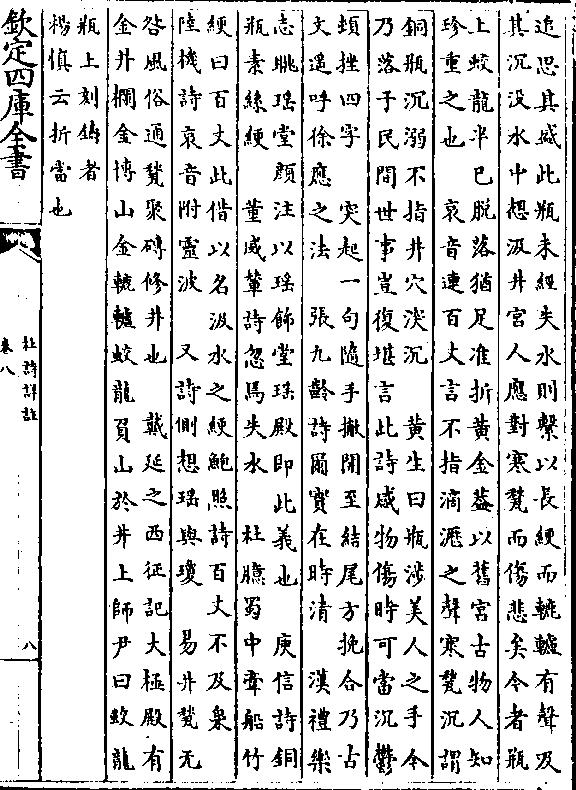 追思其盛此瓶未經失水則繫以長綆而轆轤有聲及
其沉没水中想汲井宮人應對寒甃而傷悲矣今者瓶
上蛟龍半已脱落猶足准折黄金葢以舊宮古物人知
珍重之也　哀音連百丈言不指滴瀝之聲寒甃沉謂
銅瓶沉溺不指井穴淡沉　黄生曰瓶渉美人之手今
乃落于民間世事豈復堪言此詩感物傷時可當沉鬱
頓挫四字　突起一句隨手撇開至結尾方挽合乃古
文遥呼徐應之法　張九齡詩爾寳在時清　漢禮樂
志眺瑶堂顔注以瑶飾堂瑶殿即此義也　庾信詩銅
瓶素絲綆　董威輦詩忽焉失水　杜臆蜀中牽船竹
綆曰百丈此借以名汲水之綆鮑照詩百丈不及泉
陸機詩哀音附靈波　又詩側想瑶與瓊　易井甃无
咎風俗通甃聚磚修井也　戴延之西征記大極殿有
金井欄金博山金轆轤蛟龍負山於井上師尹曰蛟龍
瓶上刻鑄者
楊慎云折當也
欽定四庫全書
杜詩詳註
卷八
八